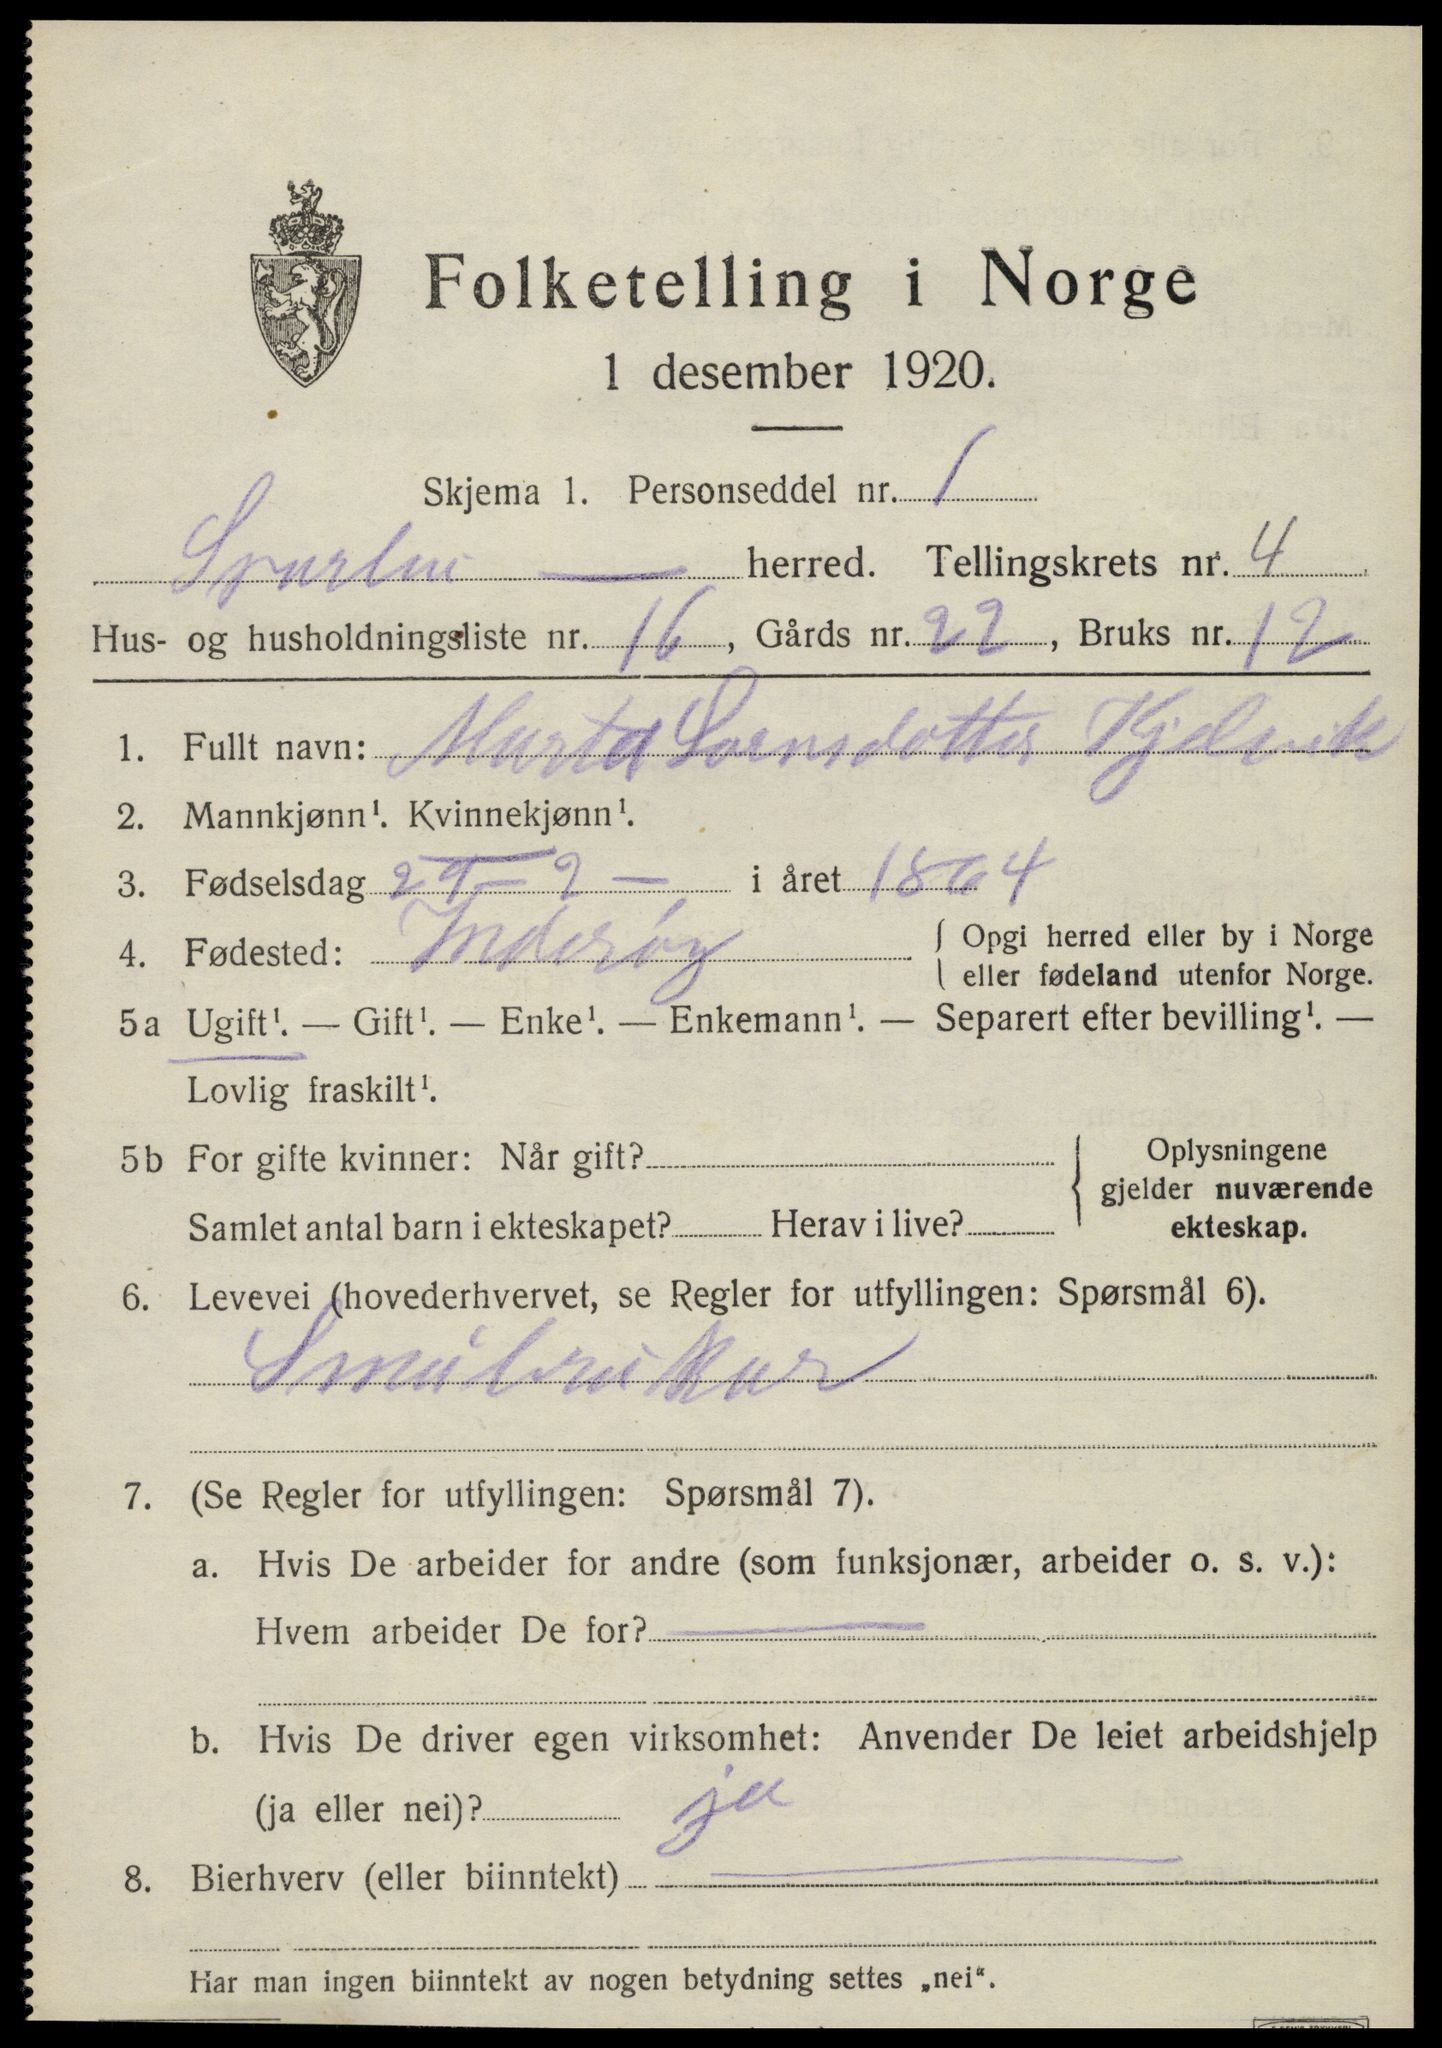 Folketelling i Norge
1 desember 1920.
Skjema 1. Personseddel nr. 1
Sparbu — herred. Tellingskrets nr. 4
Hus- og husholdningsliste nr. 16, Gårds nr. 22, Bruks nr. 12
1. Fullt navn: Marta Lornsdotter
2. Mannkjønn¹. Kvinnekjønn¹.
3. Fødselsdag 29 - 2 - i året 1864
4. Fødested: Inderøy { Opgi herred eller by i Norge
eller fødeland utenfor Norge.
5a Ugift¹. — Gift¹. — Enke¹. — Enkemann¹. — Separert efter bevilling¹. —
Lovlig fraskilt¹.
5b For gifte kvinner: Når gift? { Oplysningene
gjelder nuværende
Samlet antal barn i ekteskapet? Herav i live? ekteskap.
6. Levevei (hovederhvervet, se Regler for utfyllingen: Spørsmål 6).
Småbrukar
7. (Se Regler for utfyllingen: Spørsmål 7).
a. Hvis De arbeider for andre (som funksjonær, arbeider o. s. v.):
Hvem arbeider De for? —
b. Hvis De driver egen virksomhet: Anvender De leiet arbeidshjelp
(ja eller nei)? ja
8. Bierhverv (eller biinntekt) —
Har man ingen biinntekt av nogen betydning settes „nei“.